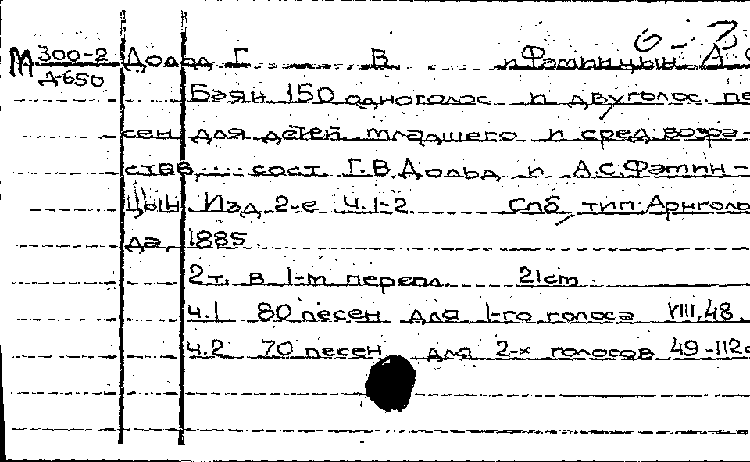 0-7
М 300-2 Дольд Г. В. и Фаминцын А. С
Д-650
Баян 150 одноголос. и двуголос. пе
сен для детей младшего и сред. возра-
ства, ... сост. Г.В. Дольд и А.С. Фамин-
цын. Изд. 2-е Ч.1-2 Спб, тип. Арнголь
да, 1885.
2 т. в 1-м перепл. 21 cm
ч.1 80 песен для 1-го голоса VIII, 48.
ч.2 70 песен для 2-х голосов 49-112 с